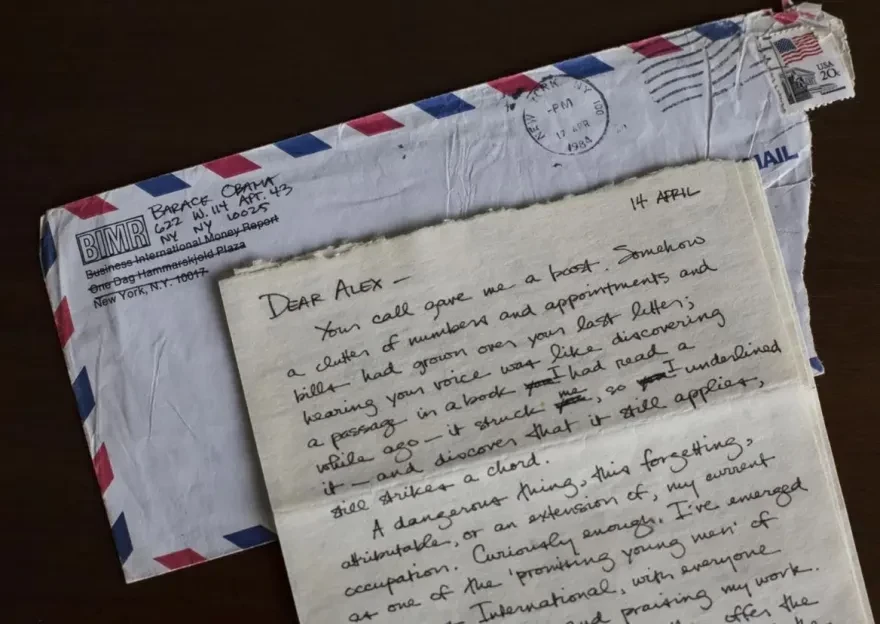 USA
20c
NEW YORK NY 100
-PM
17 APR
1984
MAIL
BARACK OBAMA
622 W. 114 APT. 43
NY NY 10025
BIMR
Business International Money Report
One Dag Hammarskjold Plaza
New York, N.Y. 10017
14 APRIL
DEAR ALEX —
Your call gave me a boost. Somehow
a clutter of numbers and appointments and
bills had grown over your last letter;
hearing your voice was like discovering
a passage in a book you I had read a
while ago — it struck me, so you I underlined
it — and discover that it still applies,
still strikes a chord.
A dangerous thing, this forgetting,
attributable, or an extension of, my current
occupation. Curiously enough, I've emerged
as one of the 'promising young men' of
International, with everyone
and praising my work.
offer the